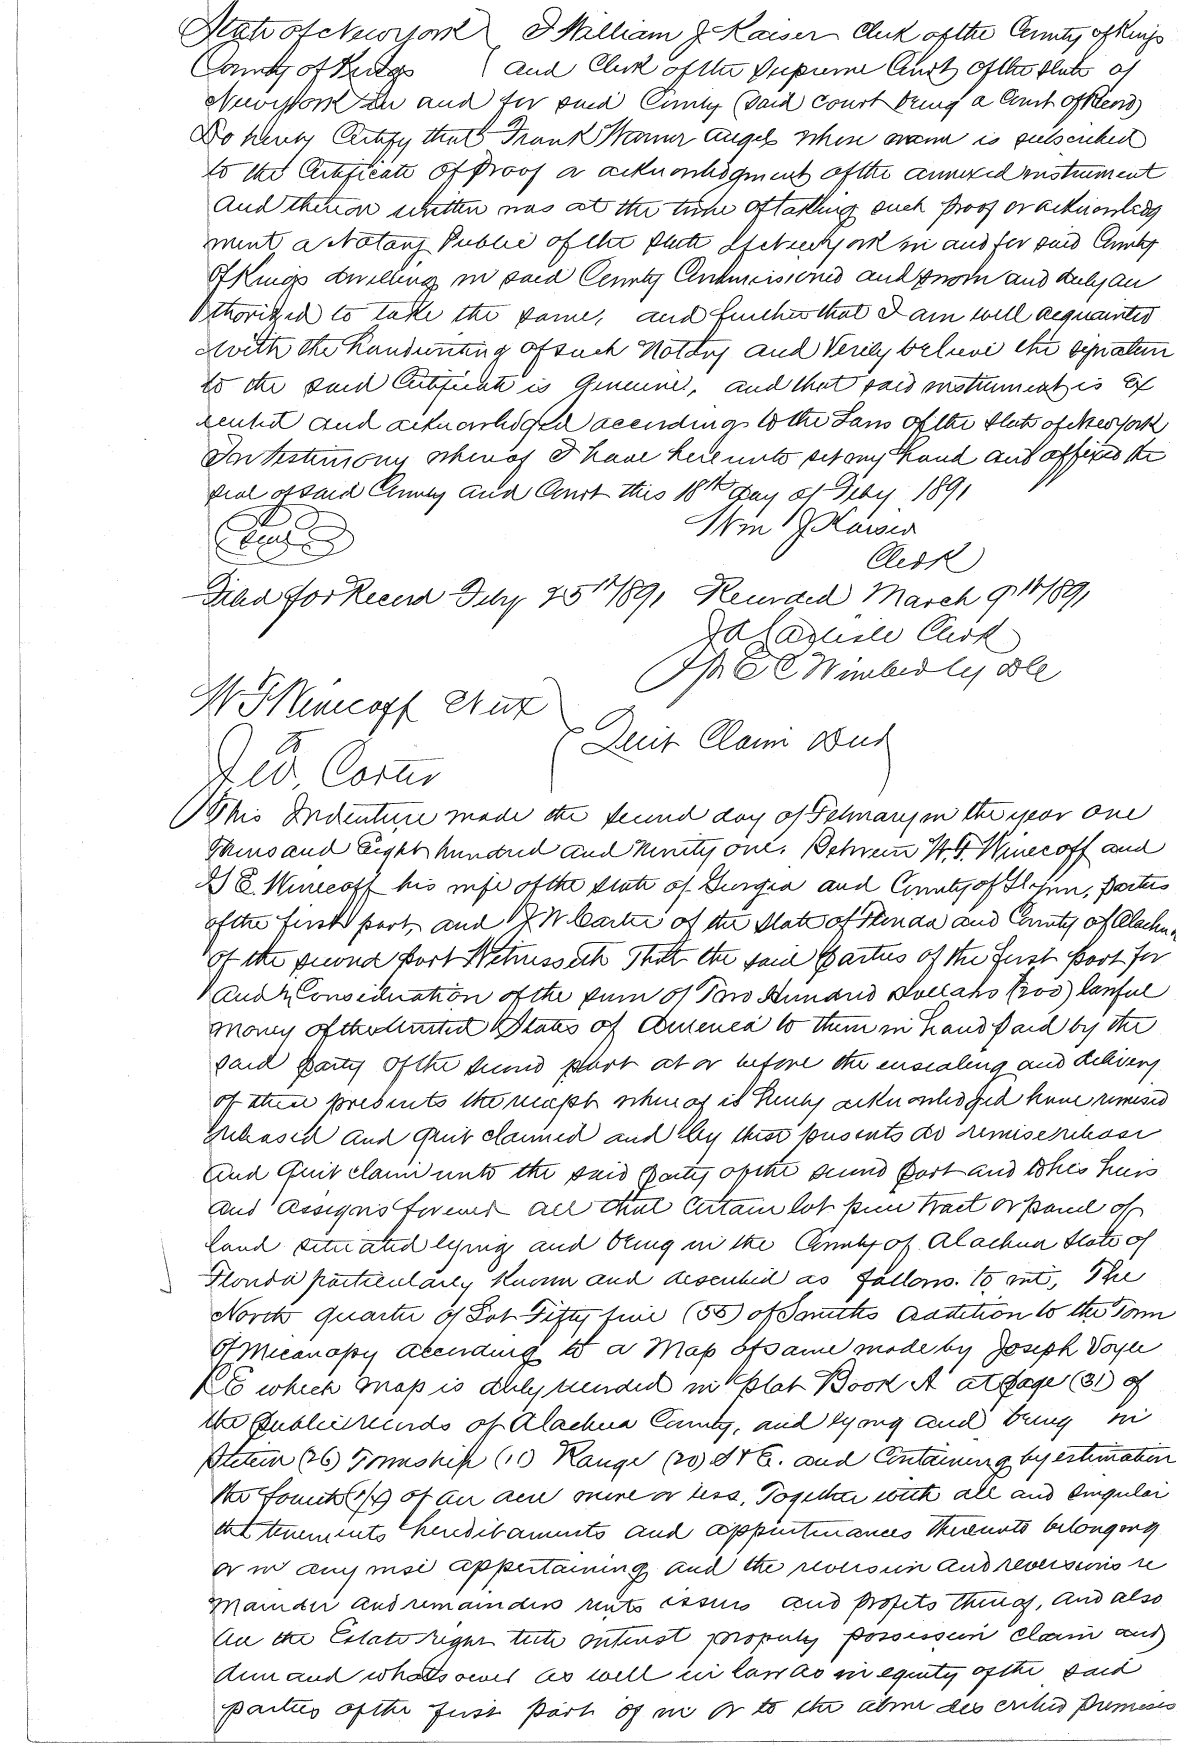 State of New York } I William J Kaiser Clerk of the County of Kings
County of Kings } and Clerk of the Supreme Court of the State of
New York in and for said County (said court being a Court of Record)
Do hereby Certify that Frank Warner Angel whose name is subscribed
to the Certificate of Proof or acknowledgment of the annexed instrument
and thereon written was at the time of taking such proof or acknowledg
ment a Notary Public of the State of New York in and for said County
of Kings dwelling in said County Commissioned and sworn and duly au
thorized to take the same, and further that I am well acquainted
with the handwriting of such Notary and Verily believe the signature
to the said Certificate is Genuine, and that said instrument is Ex
ecuted and acknowledged according to the Laws of the State of New York
In testimony whereof I have hereunto set my hand and affixed the
seal of said County and Court this 18th day of Feby 1891
Seal Wm J Kaiser
Clerk
Filed for Record Feby 25th 1891 Recorded March 9th 1891
J A Carlisle Clerk
Pr E C Wimberly DC
W F Winecoff & Ux
To } Quit Claim Deed
J W Carter
This Indenture made the second day of February in the year one
Thousand Eight hundred and Ninety one. Between W. F. Winecoff and
G E Winecoff his wife of the State of Georgia and County of Glynn, parties
of the first part and J W Carter of the State of Florida and County of Alachua
of the second part Witnesseth That the said parties of the first part for
and in Consideration of the sum of Two Hundred Dollars (200) lawful
money of the United States of America to them in hand paid by the
said party of the second part at or before the ensealing and delivery
of these presents the receipt whereof is hereby acknowledged have remised
released and quit claimed and by these presents do remise release
and Quit claim unto the said party of the second part and to his heirs
and assigns forever all that certain lot piece tract or parcel of
land situated lying and being in the County of Alachua State of
Florida particularly known and described as follows. to wit, The
North quarter of Lot Fifty five (55) of Smiths addition to the Town
of Micanopy according to a Map of same made by Joseph Voyle
C E which map is duly recorded in Plat Book A at page (31) of
the public records of Alachua County, and lying and being in
Section (26) Township (11) Range (20) S & E. and Containing by estimation
the fourth (1/4) of an acre more or less, Together with all and singular
the tenements hereditaments and appurtenances thereunto belonging
or in any wise appertaining and the reversion and reversions re
mainder and remainders rents issues and profits thereof, and also
all the Estate right title interest property possession claim and
demand whatsoever as well in law as in equity of the said
parties of the first part of in or to the above described premises